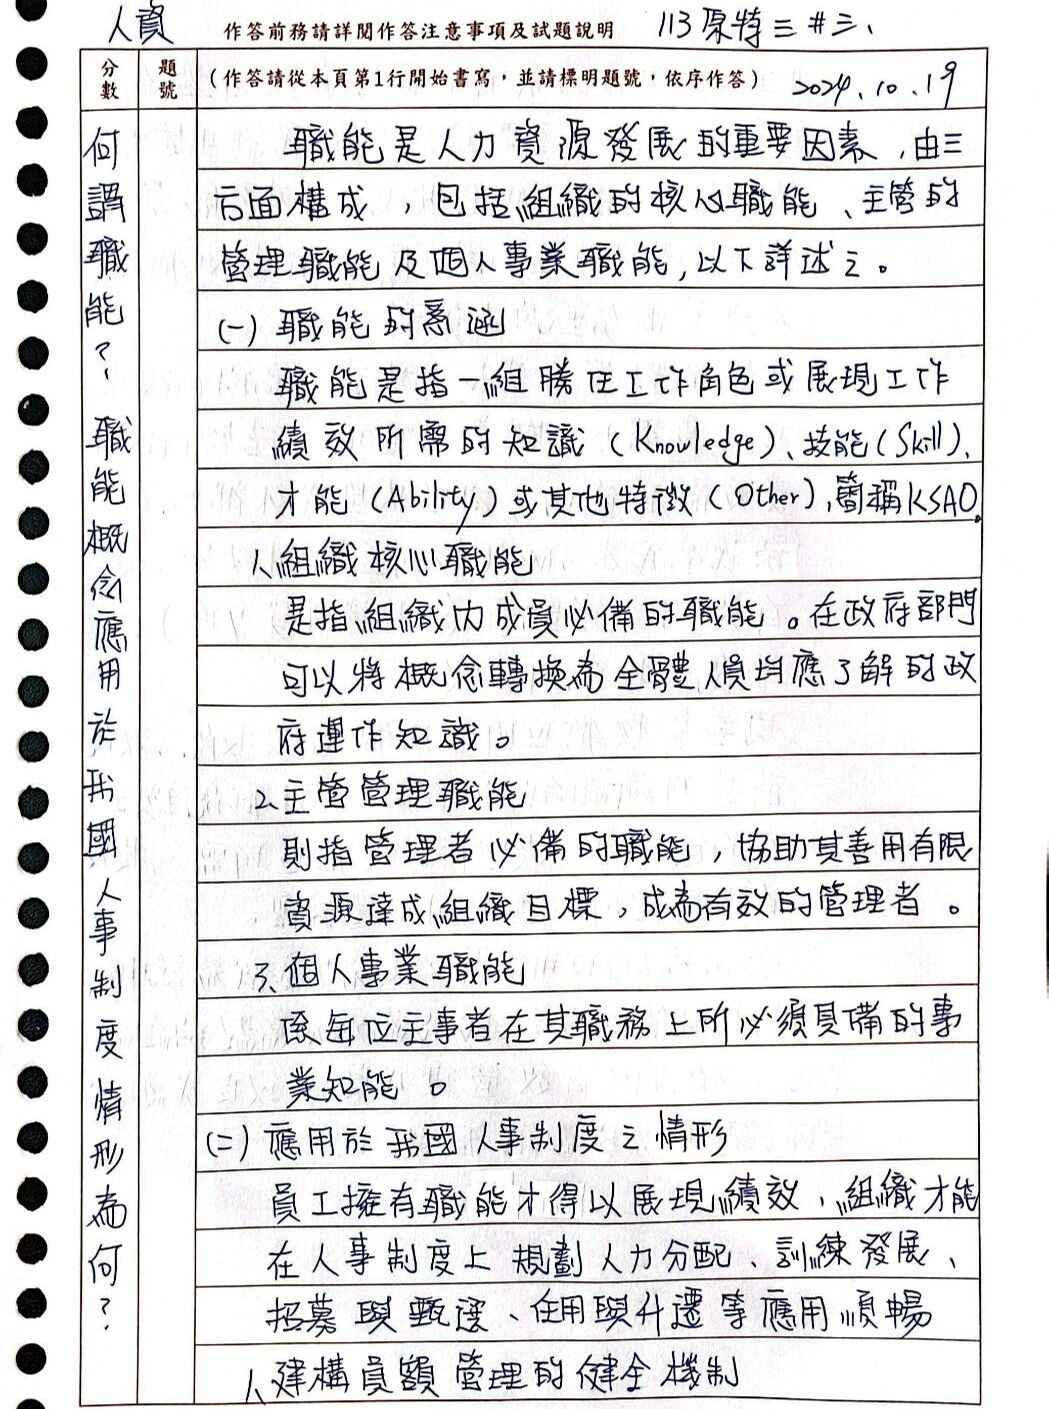 人資 作答前務請詳閱作答注意事項及試題說明 113原特三#三、
分數 題號 (作答請從本頁第1行開始書寫,並請標明題號,依序作答) 2024.10.19
何謂職能?職能概念應用於我國人事制度情形為何?
職能是人力資源發展的重要因素,由三
方面構成,包括組織的核心職能、主管的
管理職能及個人專業職能,以下詳述之。
(一) 職能的意涵
職能是指一組勝任工作角色或展現工作
績效所需的知識(Knowledge)、技能(Skill)、
才能(Ability)或其他特徵(Other),簡稱KSAO。
1.組織核心職能
是指組織內成員必備的職能。在政府部門
可以將概念轉換為全體人員均應了解的政
府運作知識。
2.主管管理職能
則指管理者必備的職能,協助其善用有限
資源達成組織目標,成為有效的管理者。
3.個人專業職能
係每位主事者在其職務上所必須具備的專
業知能。
(二) 應用於我國人事制度之情形
員工擁有職能才得以展現績效,組織才能
在人事制度上規劃人力分配、訓練發展、
招募與甄選、任用與升遷等應用順暢
1.建構員額管理的健全機制